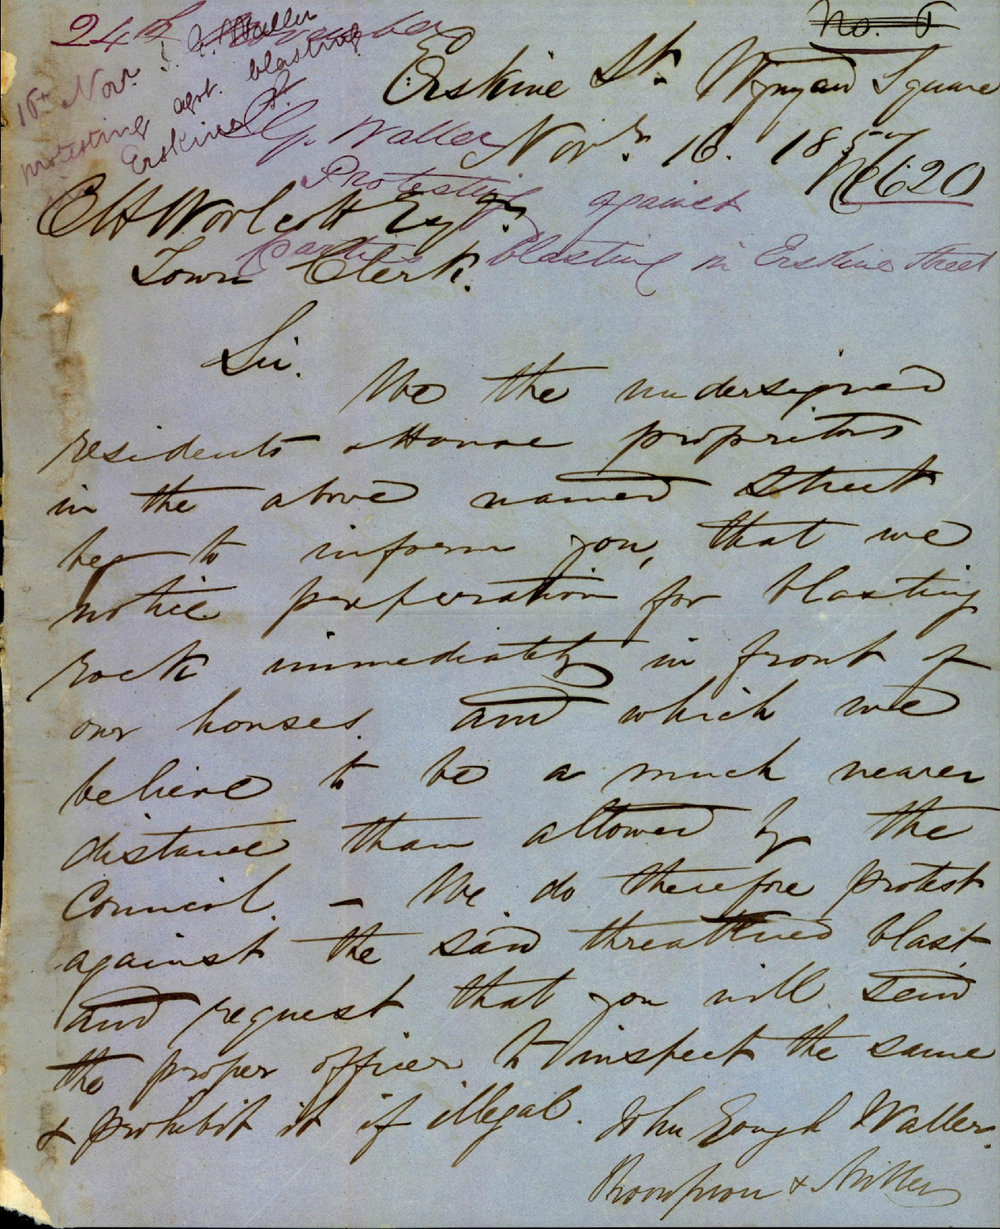 24th November
No. 5
16th Nov. J. G. Waller
protesting agst. blasting
Erskine St.
Erskine St. Wynyard Square
J G. Waller
Nov. 16. 1857
No 620
Protesting against
Parties blasting in Erskine Street
C H Woolcott Esq.
Town Clerk.
Sir.
We the undersigned
residents & House propritors
in the above named Street
beg to inform you, that we
notice preparation for blasting
rock immediately in front of
our houses. and which we
believe to be a much nearer
distance than allowed by the
Council. – We do therefore protest
against the said threattened blast
and request that you will send
the proper officer to inspect the same
& prohibit it if illegal.
John Gough Waller.
Thompson & Miller